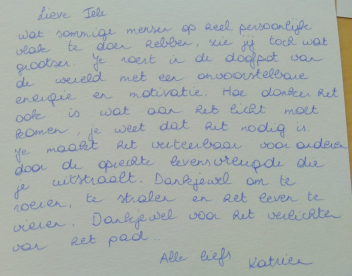 Lieve Iele
wat sommige mensen op heel persoonlijk
vlak te doen hebben, zie jij toch wat
grootser. Je roert in de doofpot van
de wereld met een onvoorstelbare
energie en motivatie. Hoe donker het
ook is wat aan het licht moet
komen, je weet dat het nodig is.
Je maakt het verteerbaar voor anderen
door de oprechte levensvreugde die
je uitstraalt. Dankjewel om te
roeren, te stralen en het leven te
vieren. Dankjewel voor het verlichten
van het pad.
Alle liefs Katrien